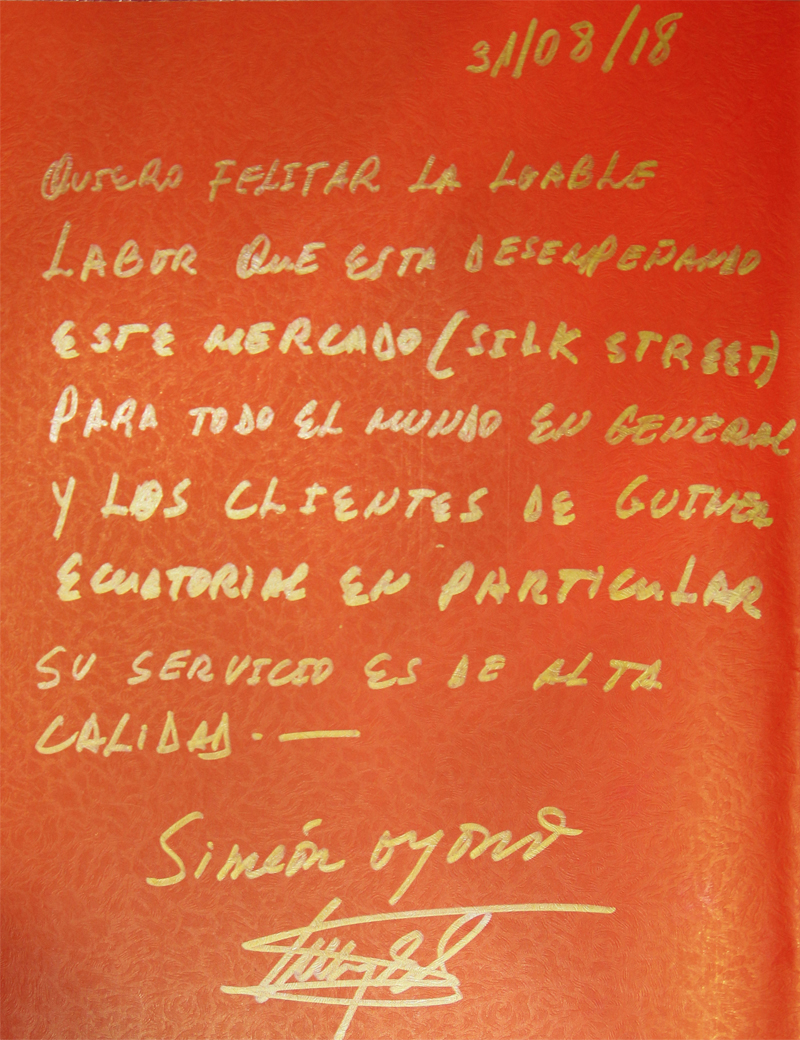 31/08/18
QUIERO FELITAR LA LOABLE
LABOR QUE ESTA DESEMPEÑANDO
ESTE MERCADO (SILK STREET)
PARA TODO EL MUNDO EN GENERAL
Y LOS CLIENTES DE GUINEA
ECUATORIAL EN PARTICULAR
SU SERVICIO ES DE ALTA
CALIDAD.—
Simeón oyono